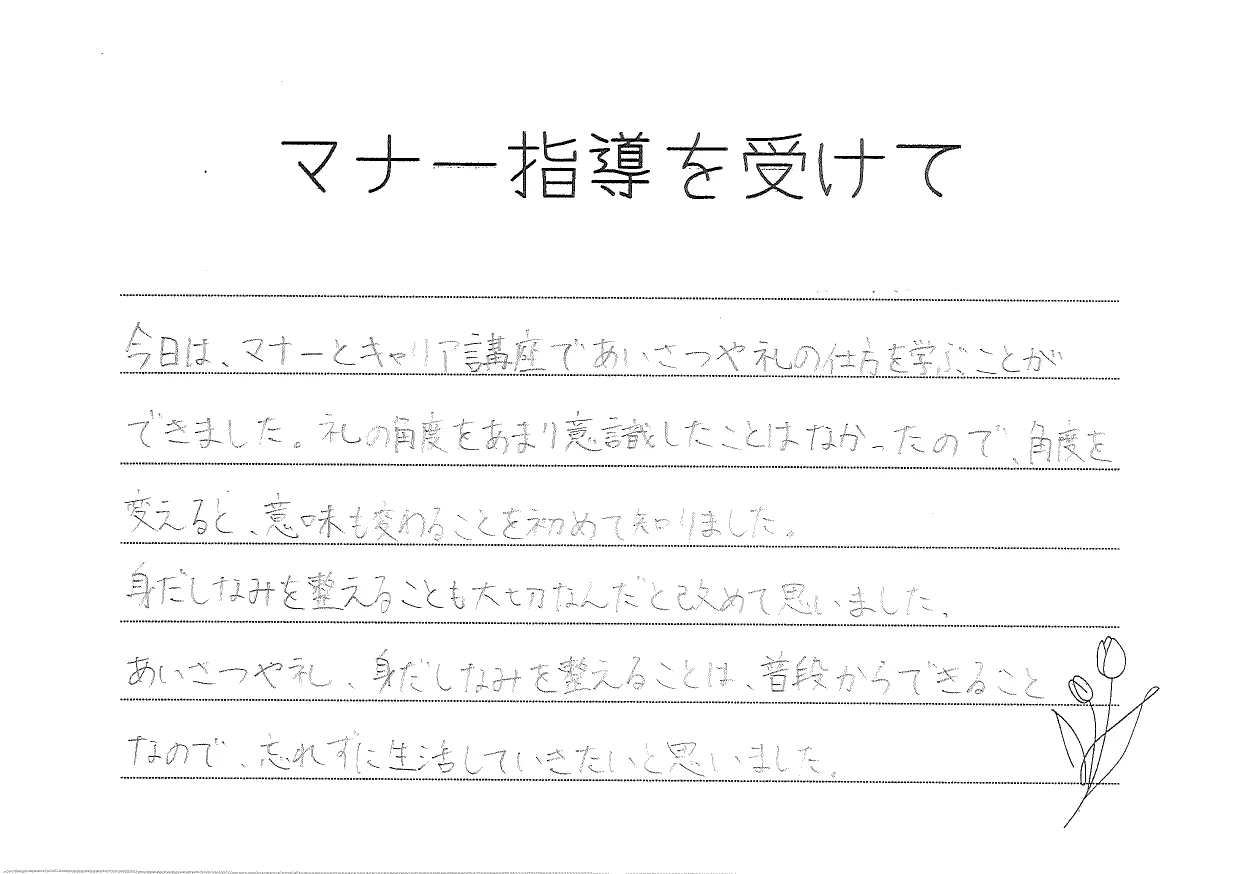 マナー指導を受けて
今日は、マナーとキャリア講座であいさつや礼の仕方を学ぶことが
できました。礼の角度をあまり意識したことはなかったので、角度を
変えると、意味も変わることを初めて知りました。
身だしなみを整えることも大切なんだと改めて思いました。
あいさつや礼、身だしなみを整えることは、普段からできること
なので、忘れずに生活していきたいと思いました。